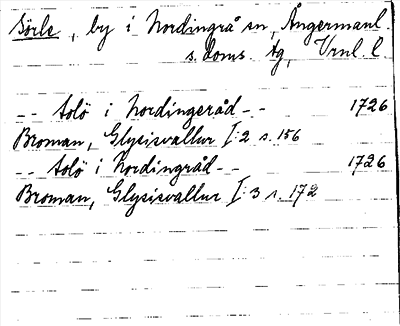 Sörle, by i Nordingrå sn, Ångermanl.
s. doms. tg, Vrnl. l.
-- Solö i Nordingeråd -- 1726
Broman, Glysisvallur I:2 s. 156
-- Solö i Nordingråd -- 1726
Broman, Glysisvallur I:3 s. 172